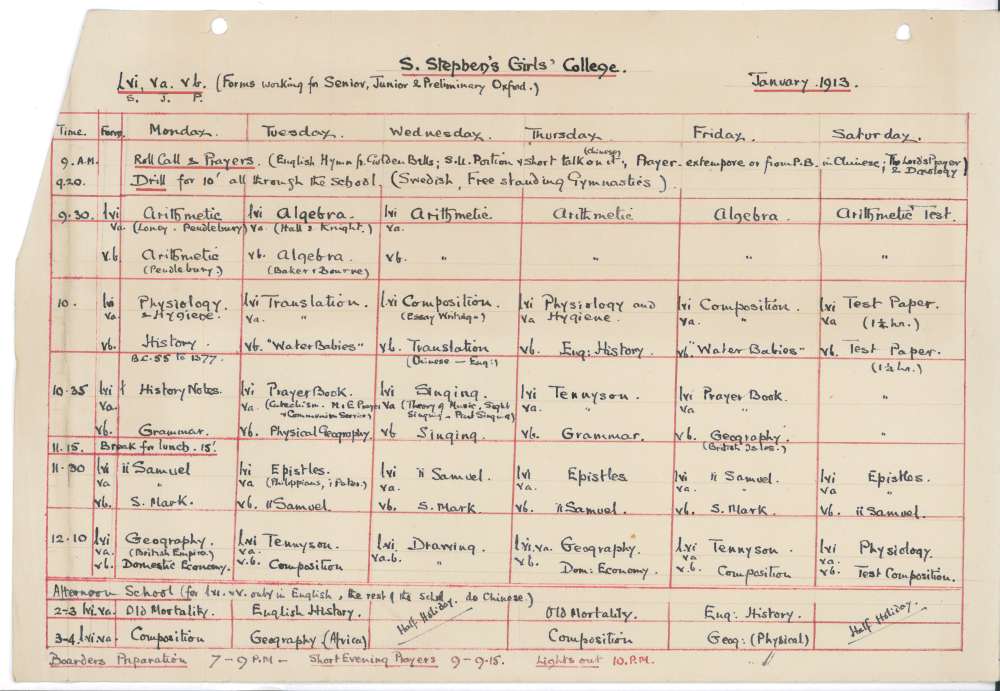 S. Stephen's Girls' College.
Lvi, va. vb. (Forms working for Senior, Junior & Preliminary Oxford.) January 1913.
S. J. P.
Time. Form. Monday. Tuesday. Wednesday. Thursday. Friday. Saturday.
9. A.M. Roll Call & Prayers. (English Hymn fr. Golden Bells; S.U. Portion & short talk on it (Chinese), Prayer extempore or from P.B. in Chinese; The Lord's Prayer & Doxology)
9.20. Drill for 10' all through the School, (Swedish, Free standing Gymnastics)
9.30. Lvi Arithmetic Lvi Algebra. Lvi Arithmetic Arithmetic Algebra. Arithmetic Test.
va. (Loney. Pendlebury) va. (Hall & Knight.) va.
v.b. Arithmetic vb. Algebra. vb. " " " "
(Pendlebury.) (Baker & Bourne)
10. Lvi Physiology. Lvi Translation. Lvi Composition. Lvi Physiology and Lvi Composition. Lvi Test Paper.
va. & Hygiene. va. " (Essay Writing.) va Hygiene. va. " va (1½ hr.)
vb. History. vb. "Water Babies" vb. Translation vb. Eng: History. vb. "Water Babies" vb. Test Paper.
B.C. 55 to 1377. (Chinese — Eng:) (1½ hr.)
10.35 Lvi & History Notes. Lvi Prayer Book. Lvi Singing. Lvi Tennyson. Lvi Prayer Book. "
va. va. (Catechism. M & E Prayer va (Theory of Music, Sight va. " va "
& Communion Service) Singing & Part Singing)
vb. Grammar. vb. Physical Geography. vb Singing. vb. Grammar. vb. Geography. "
(British Isles.)
11.15. Break for lunch. 15'.
11.30 Lvi ii Samuel Lvi Epistles. Lvi ii Samuel. Lvi Epistles Lvi ii Samuel. Lvi Epistles.
va " va (Philippians, i Peter.) va. va. va. " va. "
vb. S. Mark. vb. ii Samuel vb. S. Mark. vb. ii Samuel. vb. S. Mark. vb. ii Samuel.
12.10 Lvi Geography. Lvi Tennyson. Lvi Drawing. Lvi.va. Geography. Lvi Tennyson. Lvi Physiology.
va. (British Empire.) va. va.b. " va. va.
v.b. Domestic Economy. v.b. Composition vb. Dom: Economy. v.b. Composition vb. Test Composition.
Afternoon School (for Lvi. va. only in English, & the rest of the School do Chinese.)
2-3 Lvi.va. Old Mortality. English History. Half Holiday. Old Mortality. Eng: History. Half Holiday.
3-4 Lvi va. Composition Geography (Africa) Composition Geog: (Physical)
Boarders Preparation 7-9 P.M. — Short Evening Prayers 9-9.15. Lights out 10. P.M.